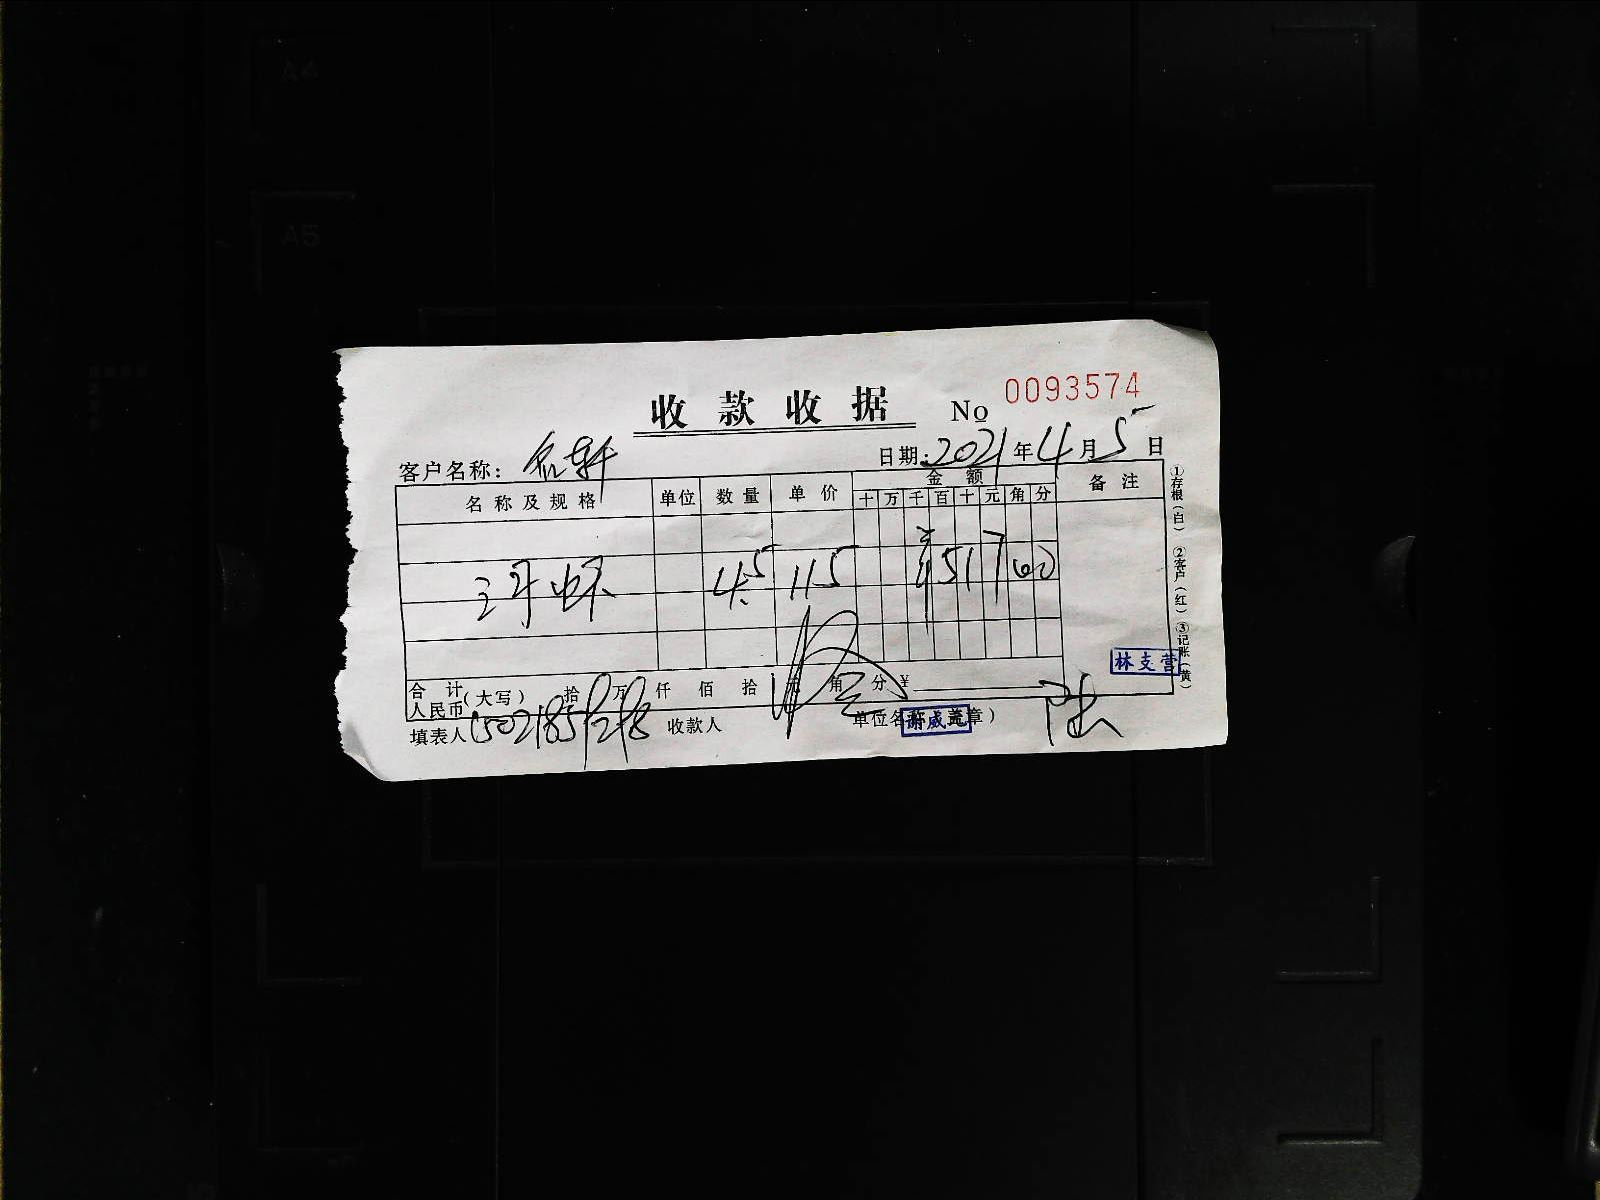 A4
A5
收款收据 No 0093574
客户名称: 名轩 日期: 2021年4月5日
名称及规格 单位 数量 单价 金额 备注
十 万 千 百 十 元 角 分
4.5 115 ¥ 517 00
合计人民币(大写) 拾 万 仟 佰 拾 元 角 分 ¥
填表人 15021859298 收款人 单位名称(盖章)
林支营
谢威芜
①存根(白) ②客户(红) ③记账(黄)